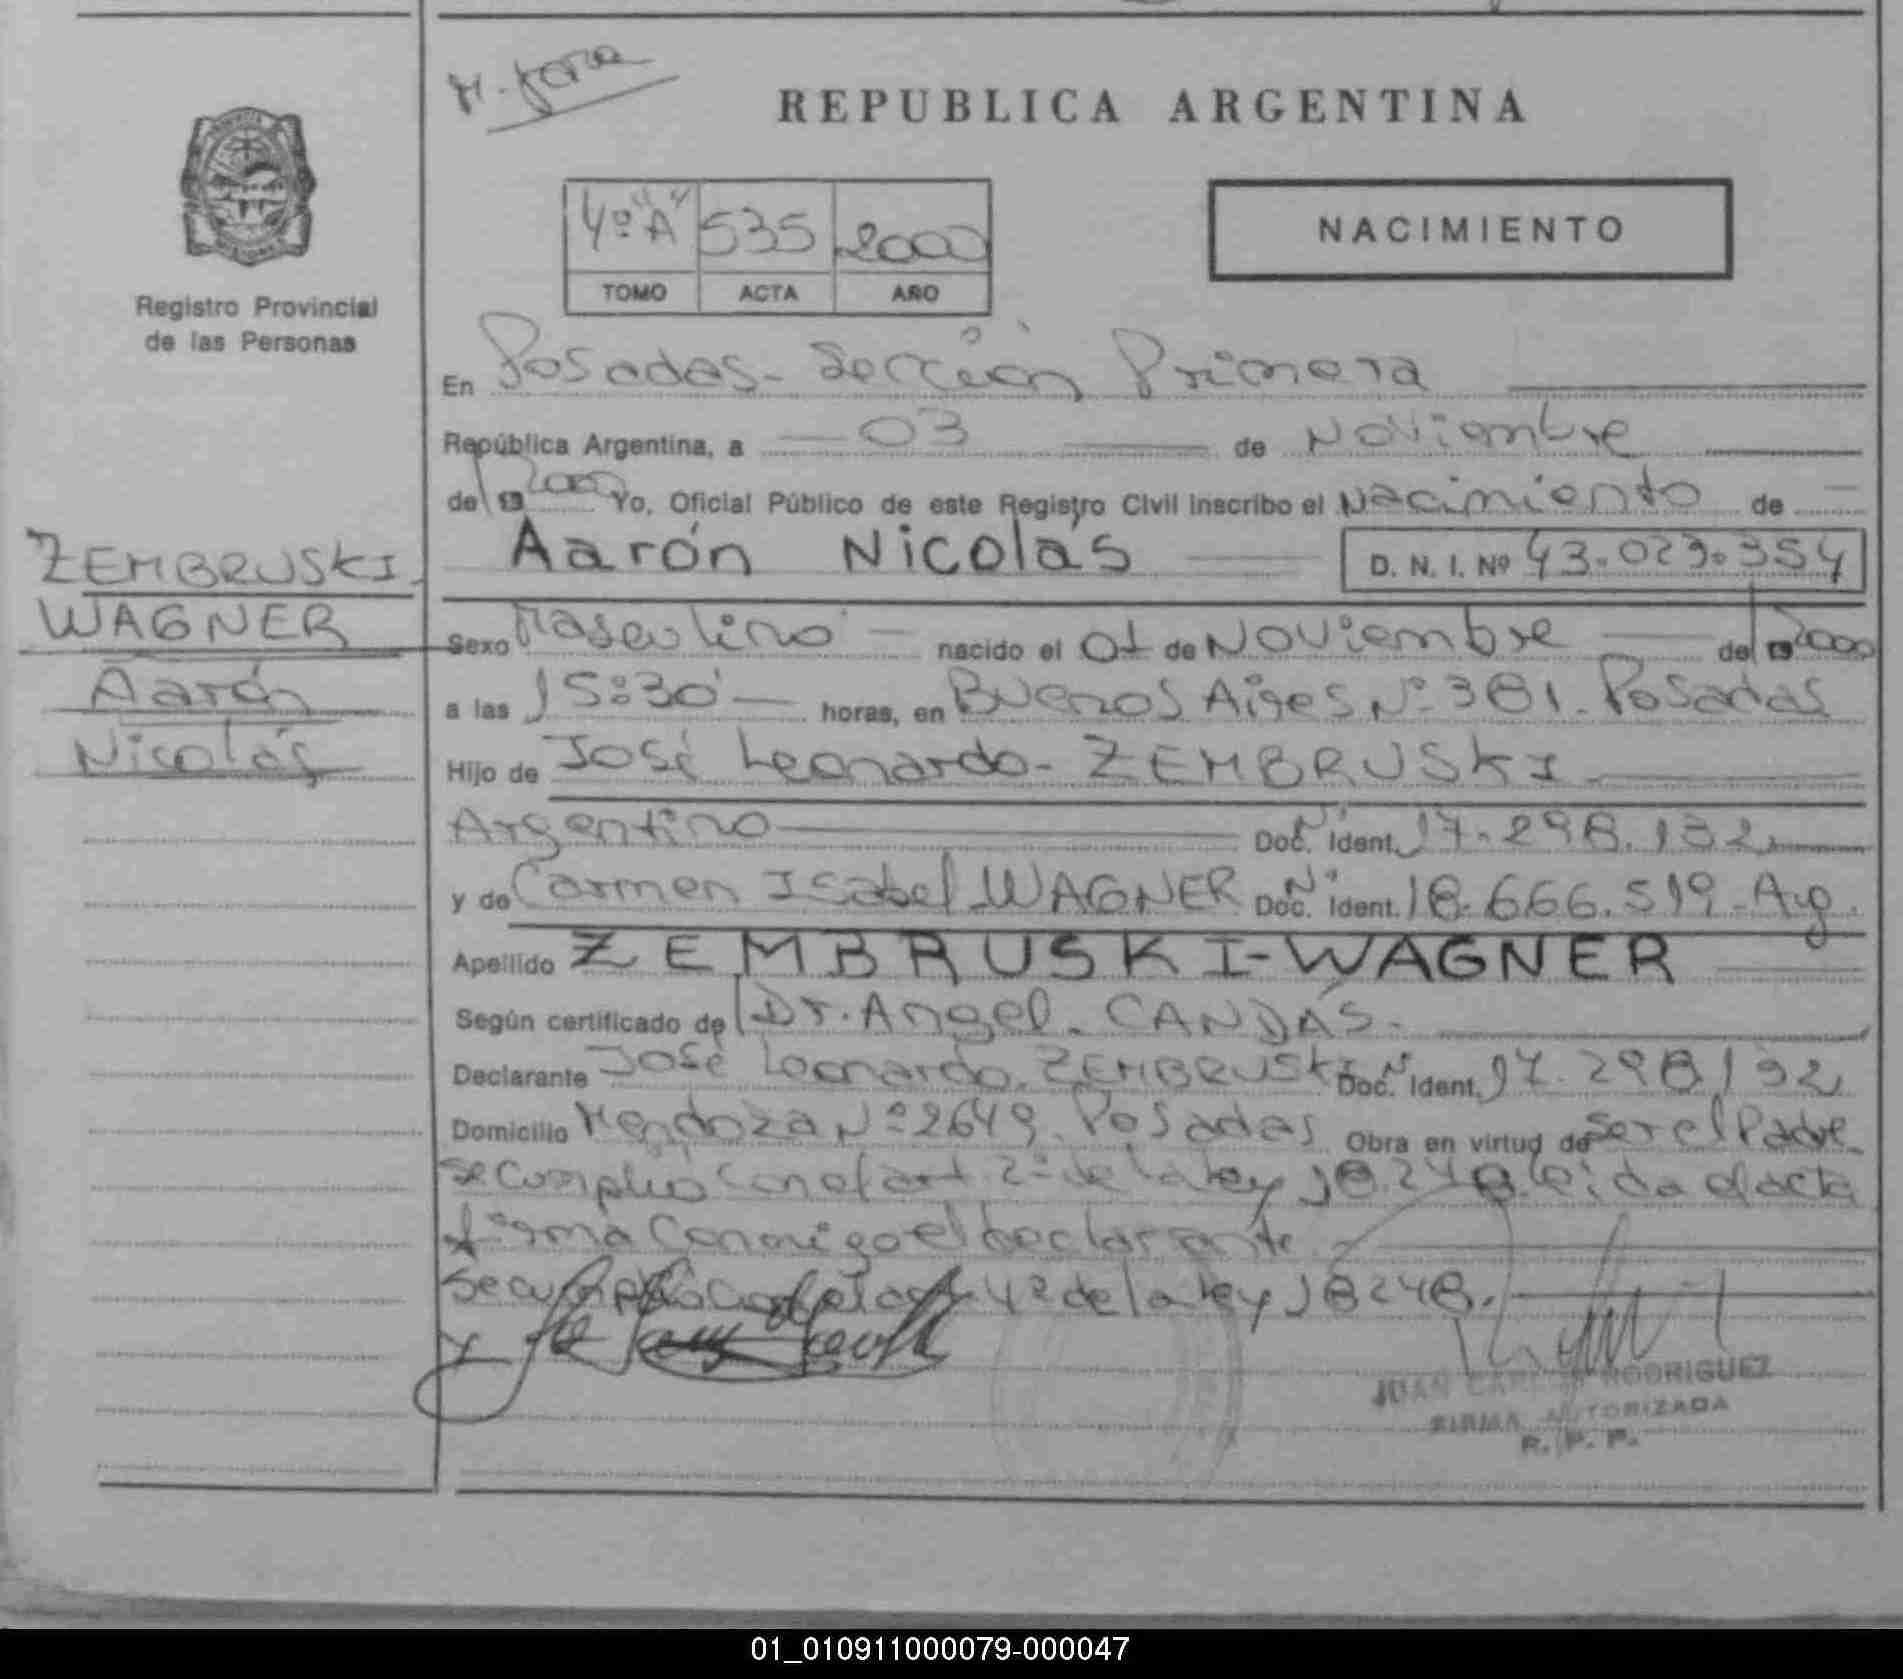 REPUBLICA ARGENTINA
4º "A" 535 2000
TOMO ACTA AÑO
NACIMIENTO
Registro Provincial
de las Personas
En Posadas - Sección Primera
República Argentina, a 03 de Noviembre
de 19 2000 Yo, Oficial Público de este Registro Civil inscribo el Nacimiento de
Aarón Nicolás D. N. I. Nº 43.023.354
ZEMBRUSKI
WAGNER
Aarón
Nicolás
Sexo Masculino nacido el 01 de Noviembre de 19 2000
a las 15:30 horas, en Buenos Aires Nº 381. Posadas
Hijo de José Leonardo - ZEMBRUSKI
Argentino Doc. Nº Ident. 17.298.132
y de Carmen Isabel WAGNER Doc. Nº Ident. 18.666.519 - Arg.
Apellido ZEMBRUSKI-WAGNER
Según certificado de Dr. Angel CANDÁS.
Declarante José Leonardo ZEMBRUSKI Doc. Nº Ident. 17.298.132
Domicilio Mendoza Nº 2649. Posadas Obra en virtud de ser el Padre
se cumplió con el art. 2º de la ley 18.248. leída el acta
firma conmigo el declarante
se cumplió con el art. 4º de la ley 18248.
JUAN CARLOS RODRIGUEZ
FIRMA AUTORIZADA
R. P. P.
01_010911000079-000047